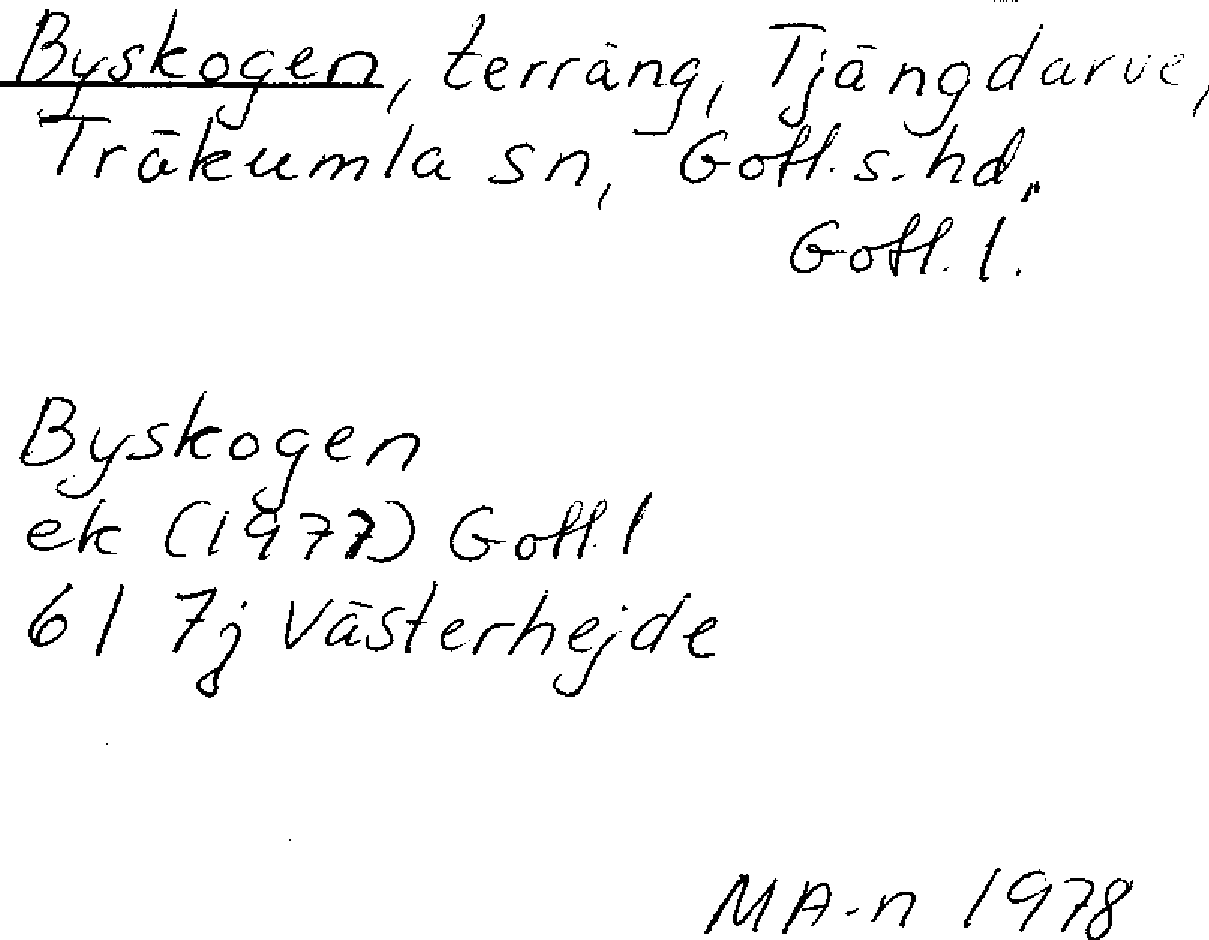 Byskogen, terräng, Tjängdarve,
Träkumla sn, Gotl. s. hd,
Gotl. l.
Byskogen
ek (1977) Gotl. l
6I 7j Västerhejde
MA-n 1978